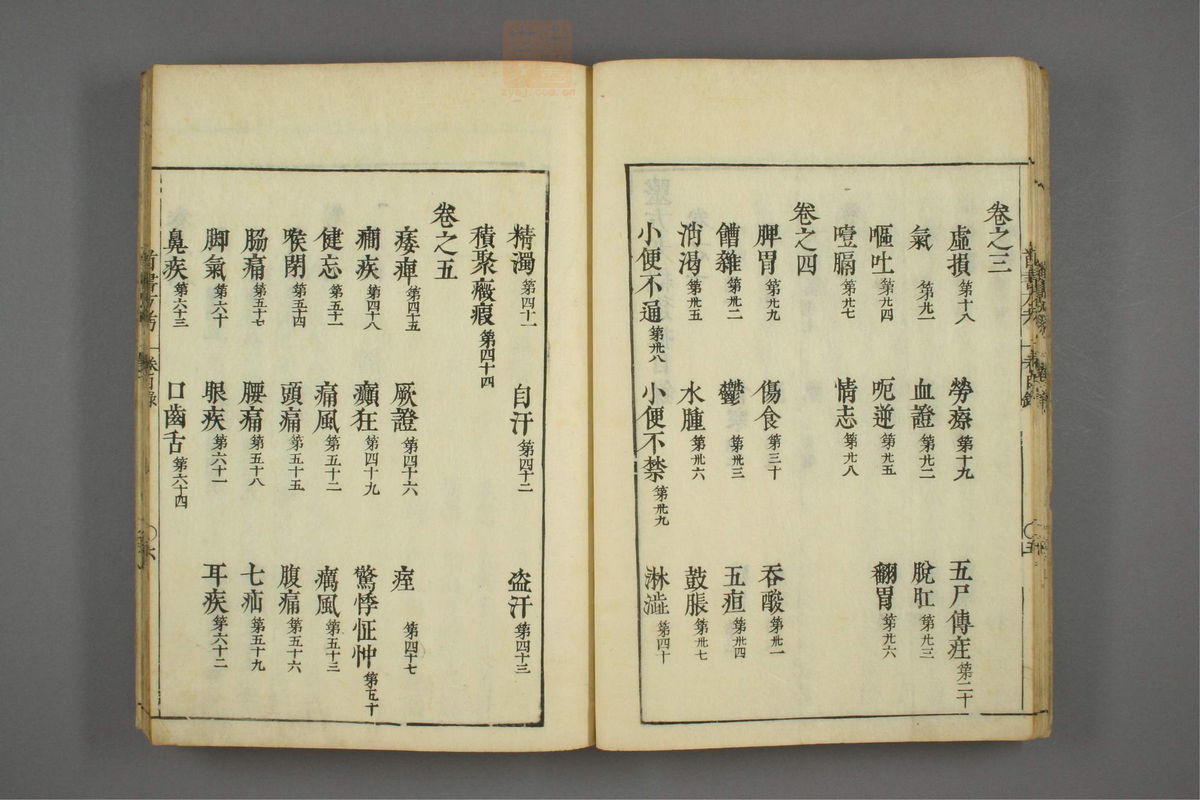 卷之三
虛損第十八 勞瘵第十九 五尸傳疰第二十
氣第廿一 血證第廿二 脫肛第廿三
嘔吐第廿四 呃逆第廿五 翻胃第廿六
噎膈第廿七 情志第廿八
卷之四
脾胃第廿九 傷食第三十 吞酸第卅一
饋雜第卅二 鬱第卅三 五疸第卅四
消渴第卅五 水腫第卅六 鼓脹第卅七
小便不通第卅八 小便不禁第卅九 淋澁第四十
精濁第四十一 自汗第四十二 盗汗第四十三
積聚癥瘕第四十四
卷之五
痿痺第四十五 厥證第四十六 痓第四十七
癎疾第四十八 癲狂第四十九 驚悸怔忡第五十
健忘第五十一 痛風第五十二 癘風第五十三
喉閉第五十四 頭痛第五十五 腹痛第五十六
脇痛第五十七 腰痛第五十八 七疝第五十九
脚氣第六十 眼疾第六十一 耳疾第六十二
鼻疾第六十三 口齒舌第六十四